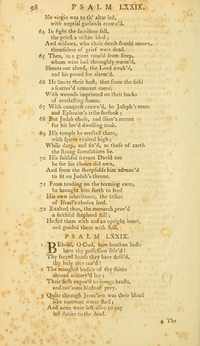 98 PSALM LXXIX.
He virgin was to th' altar led,
with nuptial garlands crown'd.
64 In fight the sacrificer fell,
the priest a victim bled;
And widows, who their death should mourn,
themselves of grief were dead.
65 Then, as a giant rous'd from sleep,
whom wine had throughly warm'd,
Shouts out aloud, the Lord awak'd,
and his proud foe alarm'd.
66 He smote their host, that from the field
a scatter'd remnant came;
With wounds imprinted on their backs
of everlasting shame.
67 With conquest crown'd, he Joseph's tents
and Ephraim's tribe forsook;
68 But Judah chose, and Sion's mount
for his lov'd dwelling took.
69 His temple he erected there,
with spires exalted high;
While deep, and fix'd, as those of earth
the strong foundations lie.
70 His faithful servant David too
he for his choice did own,
And from the sheepfolds him advanc'd
to sit on Judah's throne.
71 From tending on the teeming ewes,
he brought him forth to feed
His own inheritance, the tribes
of Israel's chosen seed.
72 Exalted thus, the monarch prov'd
a faithful shepherd still;
He fed them with an upright heart,
and guided them with skill.
PSALM LXXIX.
BEhold, O God, how heathen hosts
have thy possession seiz'd!
Thy sacred house they have defil'd,
thy holy city raz'd!
2 The mangled bodies of thy saints
abroad unbury'd lay;
Their flesh expos'd to savage beasts,
and rav'nous birds of prey.
3 Quite through Jerus'lem was their blood
like common water shed;
And none were left alive to pay
last duties to the dead.
4 The